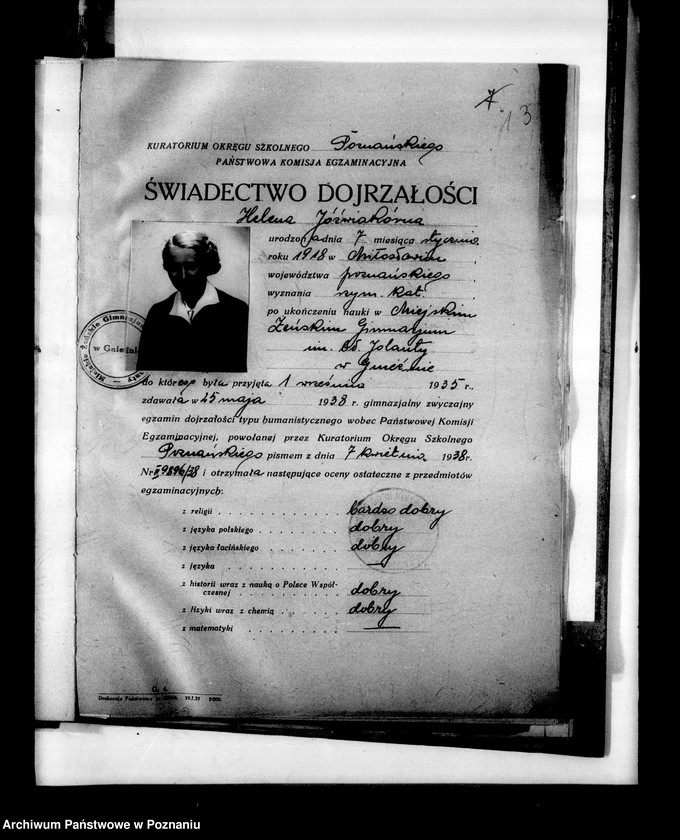 7
13
KURATORIUM OKRĘGU SZKOLNEGO Poznańskiego
PAŃSTWOWA KOMISJA EGZAMINACYJNA
ŚWIADECTWO DOJRZAŁOŚCI
Helena Jóźwiakówna
urodzona dnia 7 miesiąca stycznia
roku 1918 w Miłosławiu
województwa poznańskiego
wyznania rzym. kat.
po ukończeniu nauki w Miejskim
Żeńskim Gimnazjum
im. bł. Jolanty
w Gnieźnie
do którego była przyjęta 1 września 1935 r.,
zdawała w 25 maja 1938 r. gimnazjalny zwyczajny
egzamin dojrzałości typu humanistycznego wobec Państwowej Komisji
Egzaminacyjnej, powołanej przez Kuratorium Okręgu Szkolnego
Poznańskiego pismem z dnia 7 kwietnia 1938 r.
Nr II 9896/38 i otrzymała następujące oceny ostateczne z przedmiotów
egzaminacyjnych:
z religii . . . . . . . . . . . . bardzo dobry
z języka polskiego . . . . . . . . dobry
z języka łacińskiego . . . . . . . dobry
z języka . . . . . . . . . . —
z historii wraz z nauką o Polsce Współ-
czesnej . . . . . . . . . . dobry
z fizyki wraz z chemią . . . . . . dobry
z matematyki . . . . . . . . . —
w Gnieźnie
Archiwum Państwowe w Poznaniu